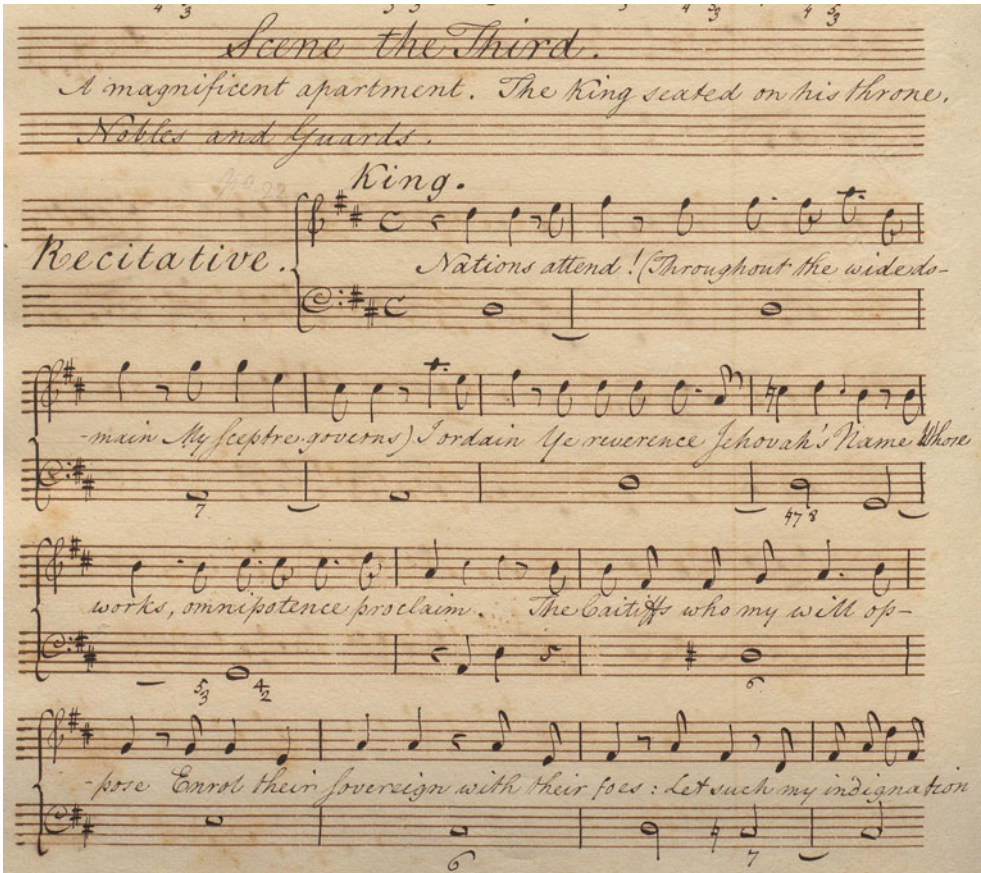 4 3 5 3 5 3 4 5 3 4 5 3
Scene the Third.
A magnificent apartment. The King seated on his throne.
Nobles and Guards.
King.
Recitative.
Nations attend! (Throughout the wide do-
-main My sceptre governs) I ordain Ye reverence Jehovah's Name Whose
7 ♮7 8
works, omnipotence proclaim. The Caitiffs who my will op-
5 3 4 2 6
-pose Enrol their Sovereign with their foes: Let such my indignation
6 7